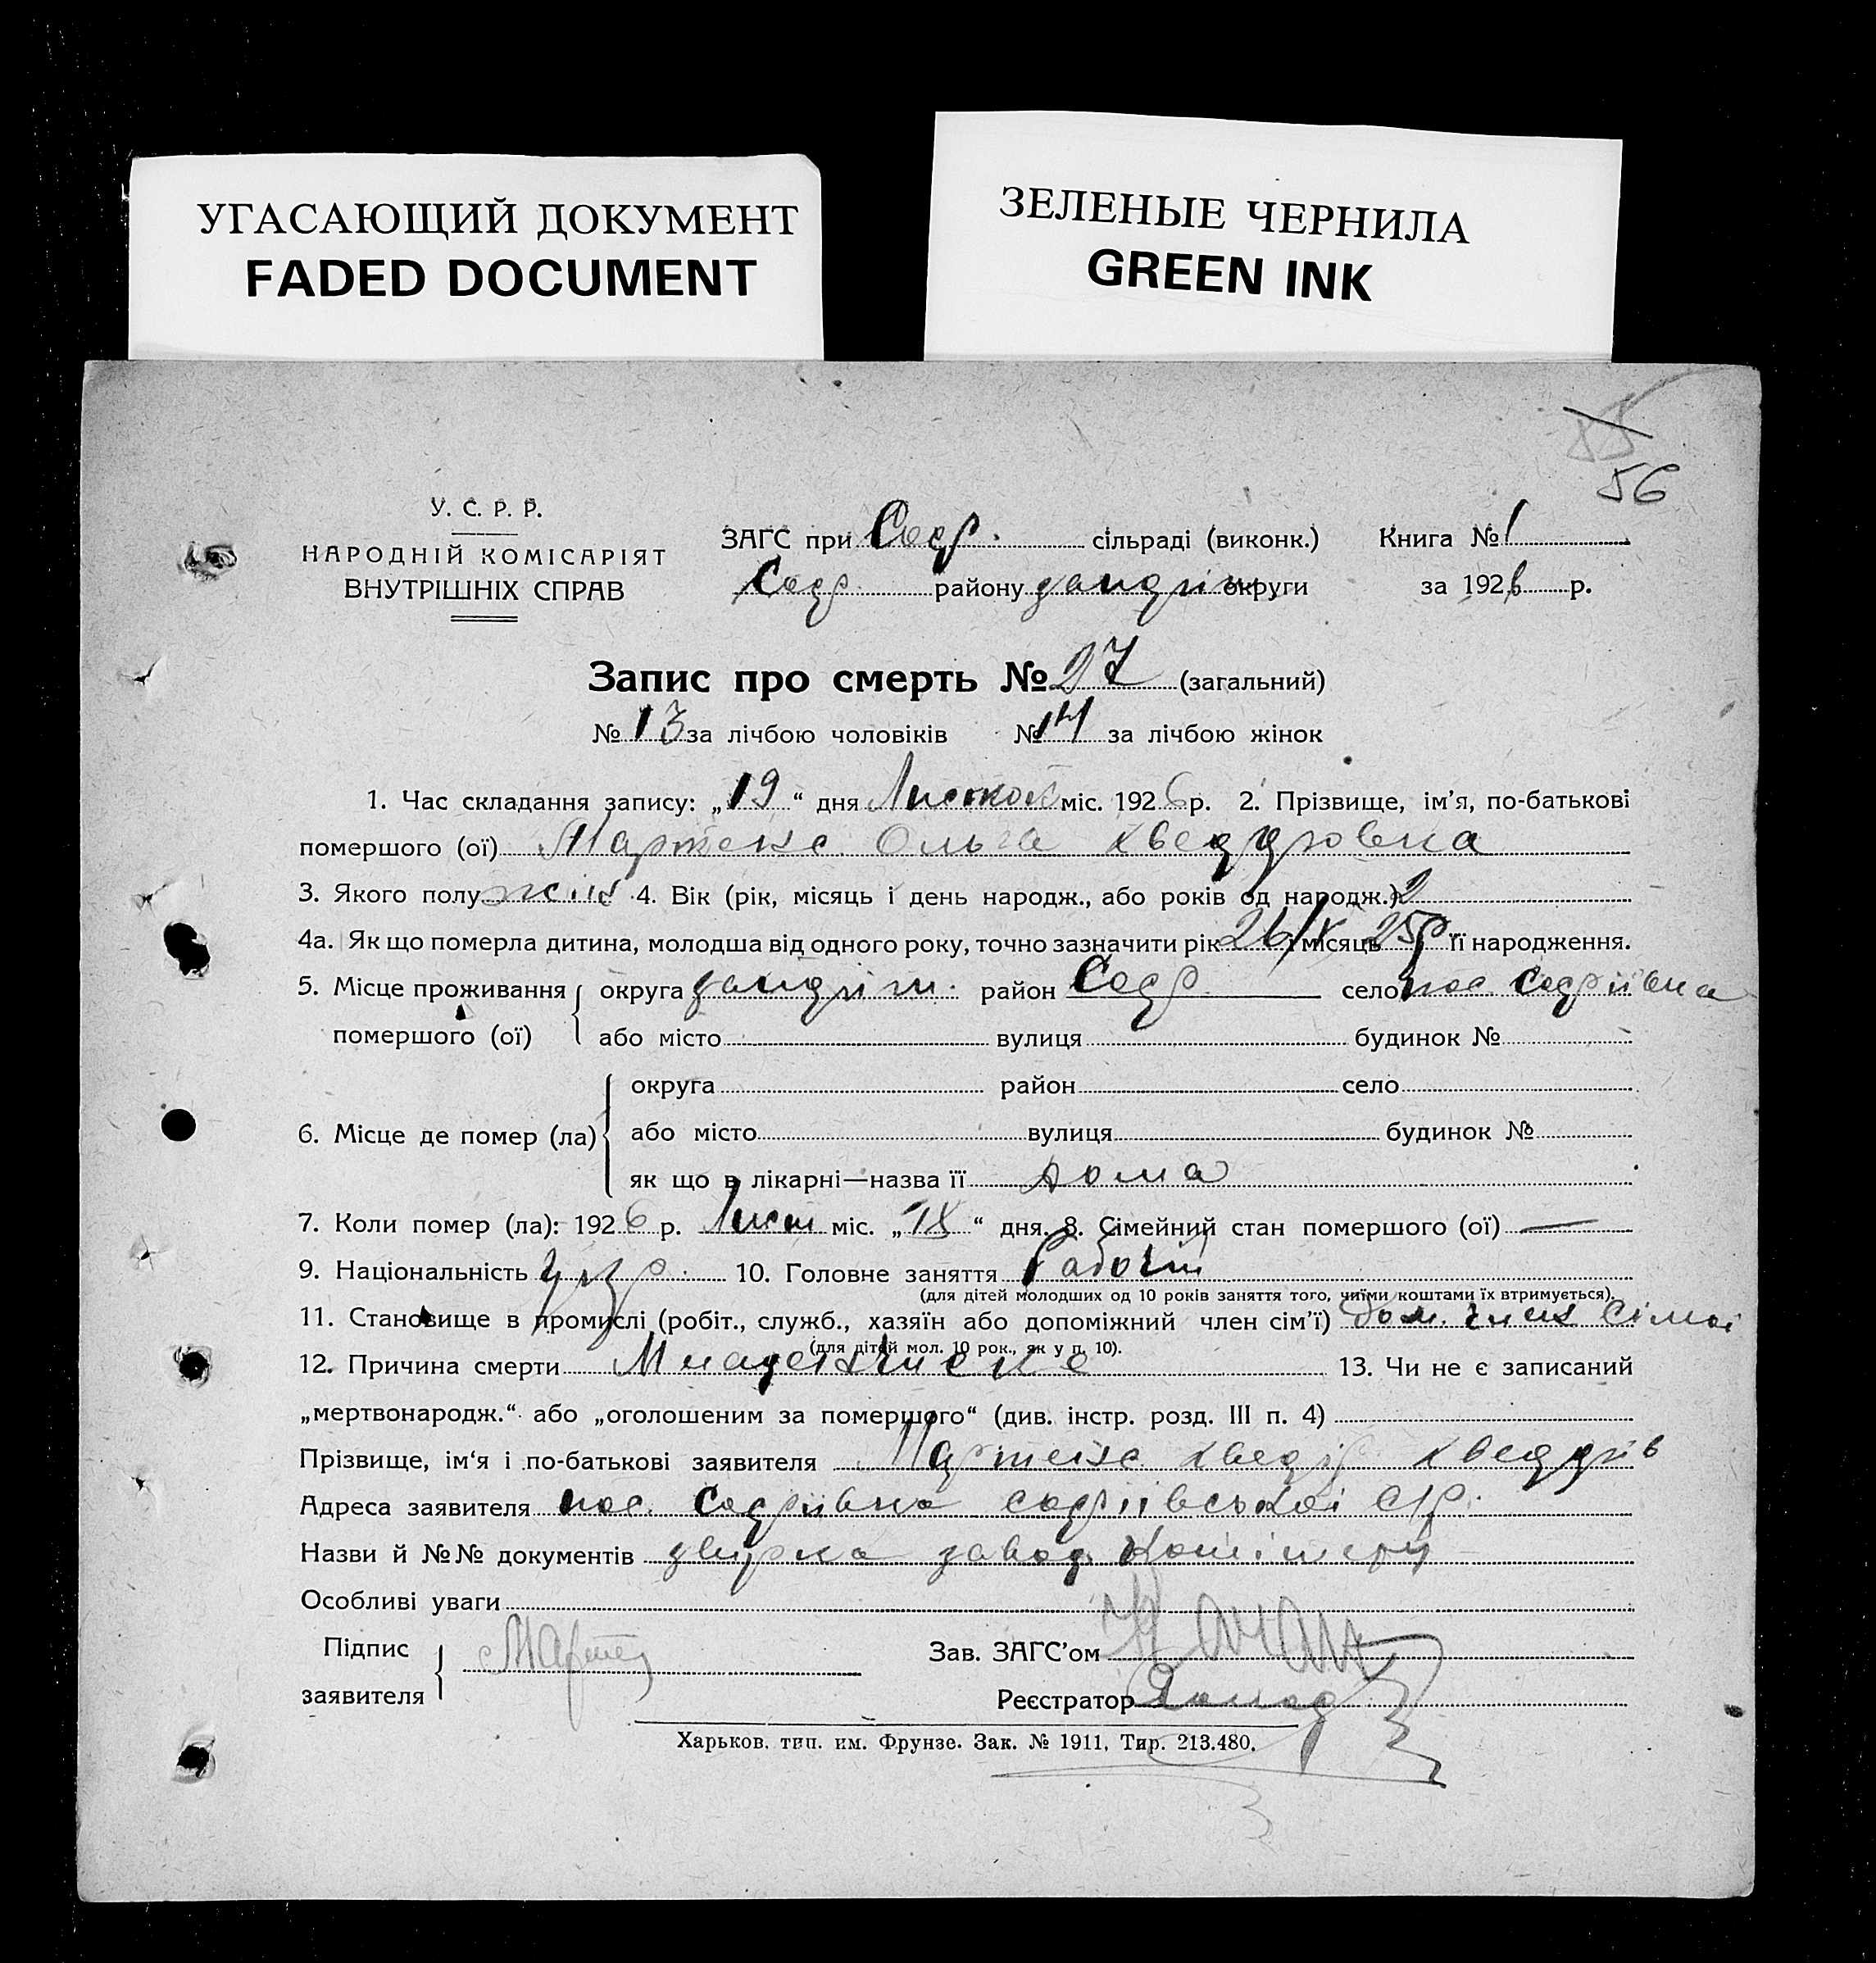 УГАСАЮЩИЙ ДОКУМЕНТ
FADED DOCUMENT
ЗЕЛЕНЫЕ ЧЕРНИЛА
GREEN INK
55
56
У. С. Р. Р.
НАРОДНІЙ КОМІСАРІЯТ
ВНУТРІШНІХ СПРАВ
ЗАГС при Соф. сільраді (виконк.)
Соф. району запоріж округи
Книга № 1
за 1926 р.
Запис про смерть № 27 (загальний)
№ 13 за лічбою чоловіків № 14 за лічбою жінок
1. Час складання запису: „19“ дня Листоп міс. 1926 р. 2. Прізвище, ім'я, по-батькові
померш́ого (ої) Мартенс Ольга
3. Якого полу жін 4. Вік (рік, місяць і день народж., або років од народж.) 2
4а. Як що померла дитина, молодша від одного року, точно зазначити рік 26/X місяць 25р її народження.
5. Місце проживання помершого (ої) округа запоріж. район Соф. село пос. Софіївка
або місто вулиця будинок №
6. Місце де помер (ла) округа район село
або місто вулиця будинок №
як що в лікарні—назва її дома
7. Коли помер (ла): 1926 р. Лист міс. „18“ дня. 8. Сімейний стан помершого (ої) —
9. Національність 10. Головне заняття Рабочій
(для дітей молодших од 10 років заняття того, чиїми коштами їх втримується).
11. Становище в промислі (робіт., служб., хазяїн або допоміжний член сім'ї) доп. член сімьї
(для дітей мол. 10 рок., як у п. 10).
12. Причина смерти 13. Чи не є записаний
„мертвонародж.“ або „оголошеним за помершого“ (див. інстр. розд. III п. 4)
Прізвище, ім'я і по-батькові заявителя Мартенс
Адреса заявителя пос. Софіївка софіївської С/Р.
Назви й №№ документів завод.
Особливі уваги
Підпис заявителя Мартенс
Зав. ЗАГС'ом
Реєстратор
Харьков. тип. им. Фрунзе. Зак. № 1911, Тир. 213.480.